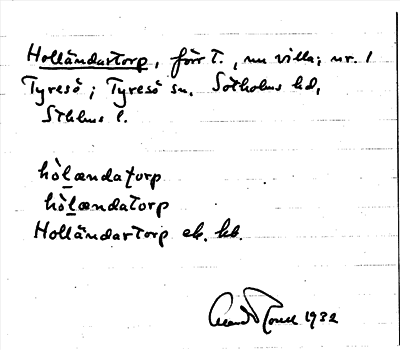 Holländartorp, förr t., nu villa; nr. 1
Tyresö; Tyresö sn. Sotholms hd,
Sthlms l.
hòlændatorp
hòlændatorp
Holländartorp ek. kb.
1932